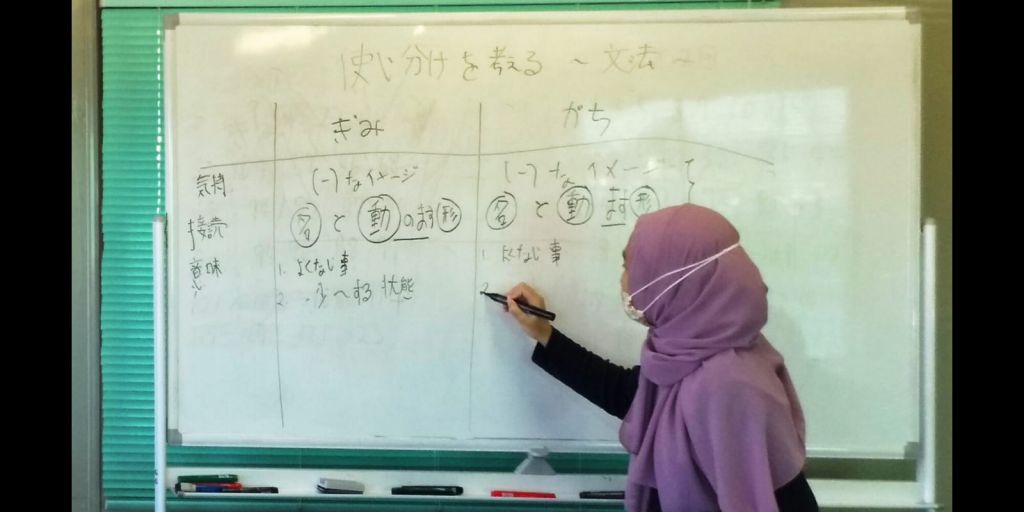 使い分けを考える ～文法～
ぎみ がち
気持 (-)なイメージ (-)なイメージ
接続 名と動のます形 名と動ます形
意味 1. よくない事 1. よくない事
2. 少～する状態 2